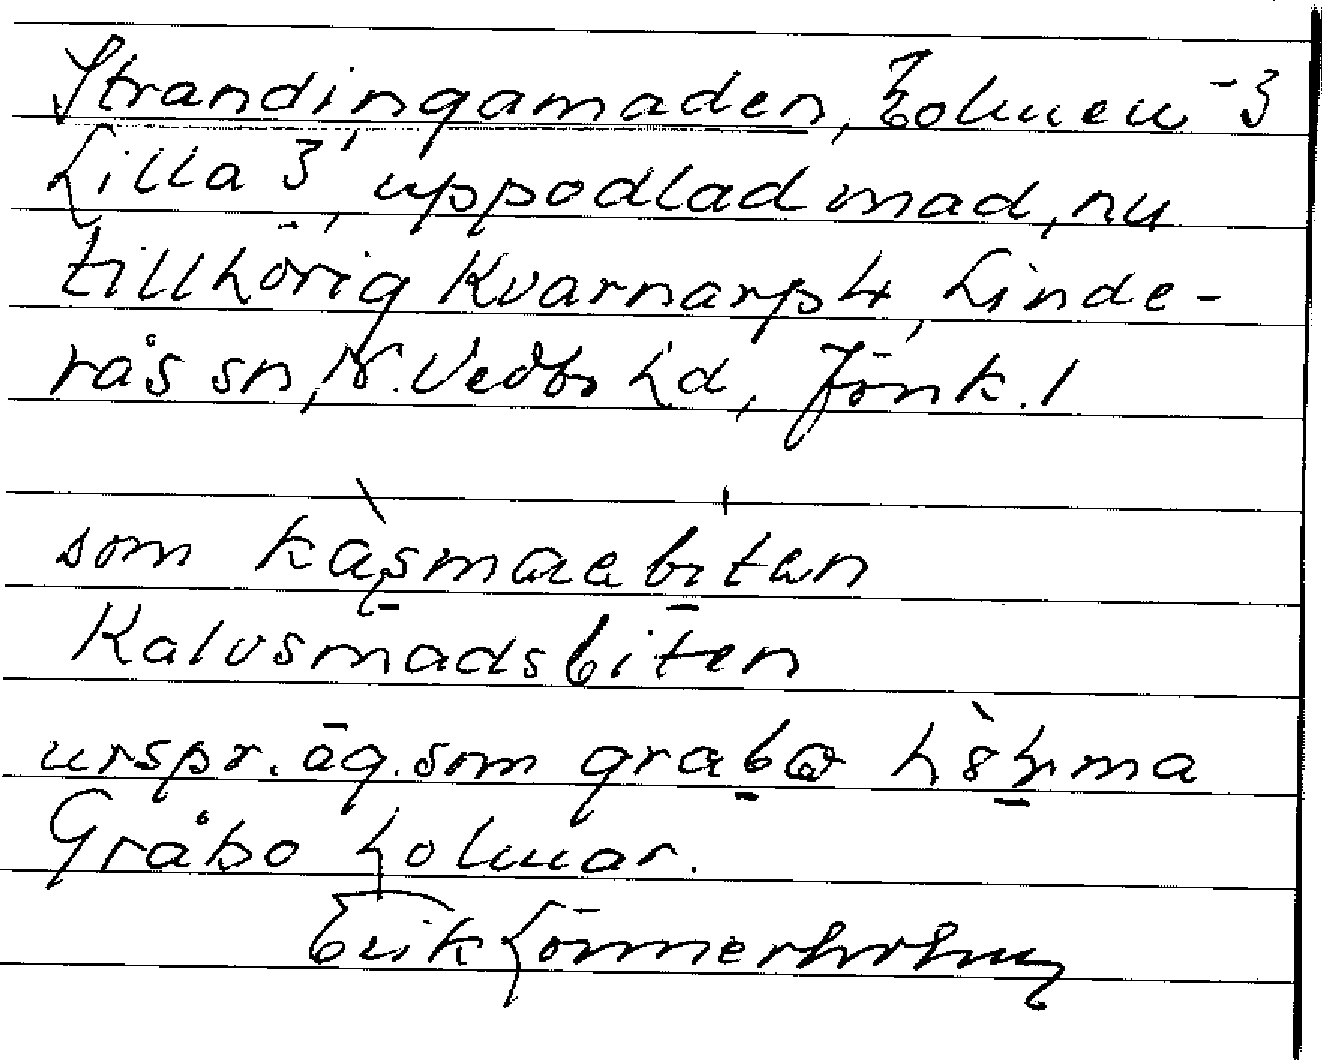 Strandingamaden, Holmen -3
Lilla 3, uppodlad mad, nu
tillhörig Kvarnarp 4, Linde-
rås sn, N. Vedbo hd, Jönk. l
som
Kalvsmadsbiten
urspr. äg. som
Gråbo holmar.
Erik Lönnerholm